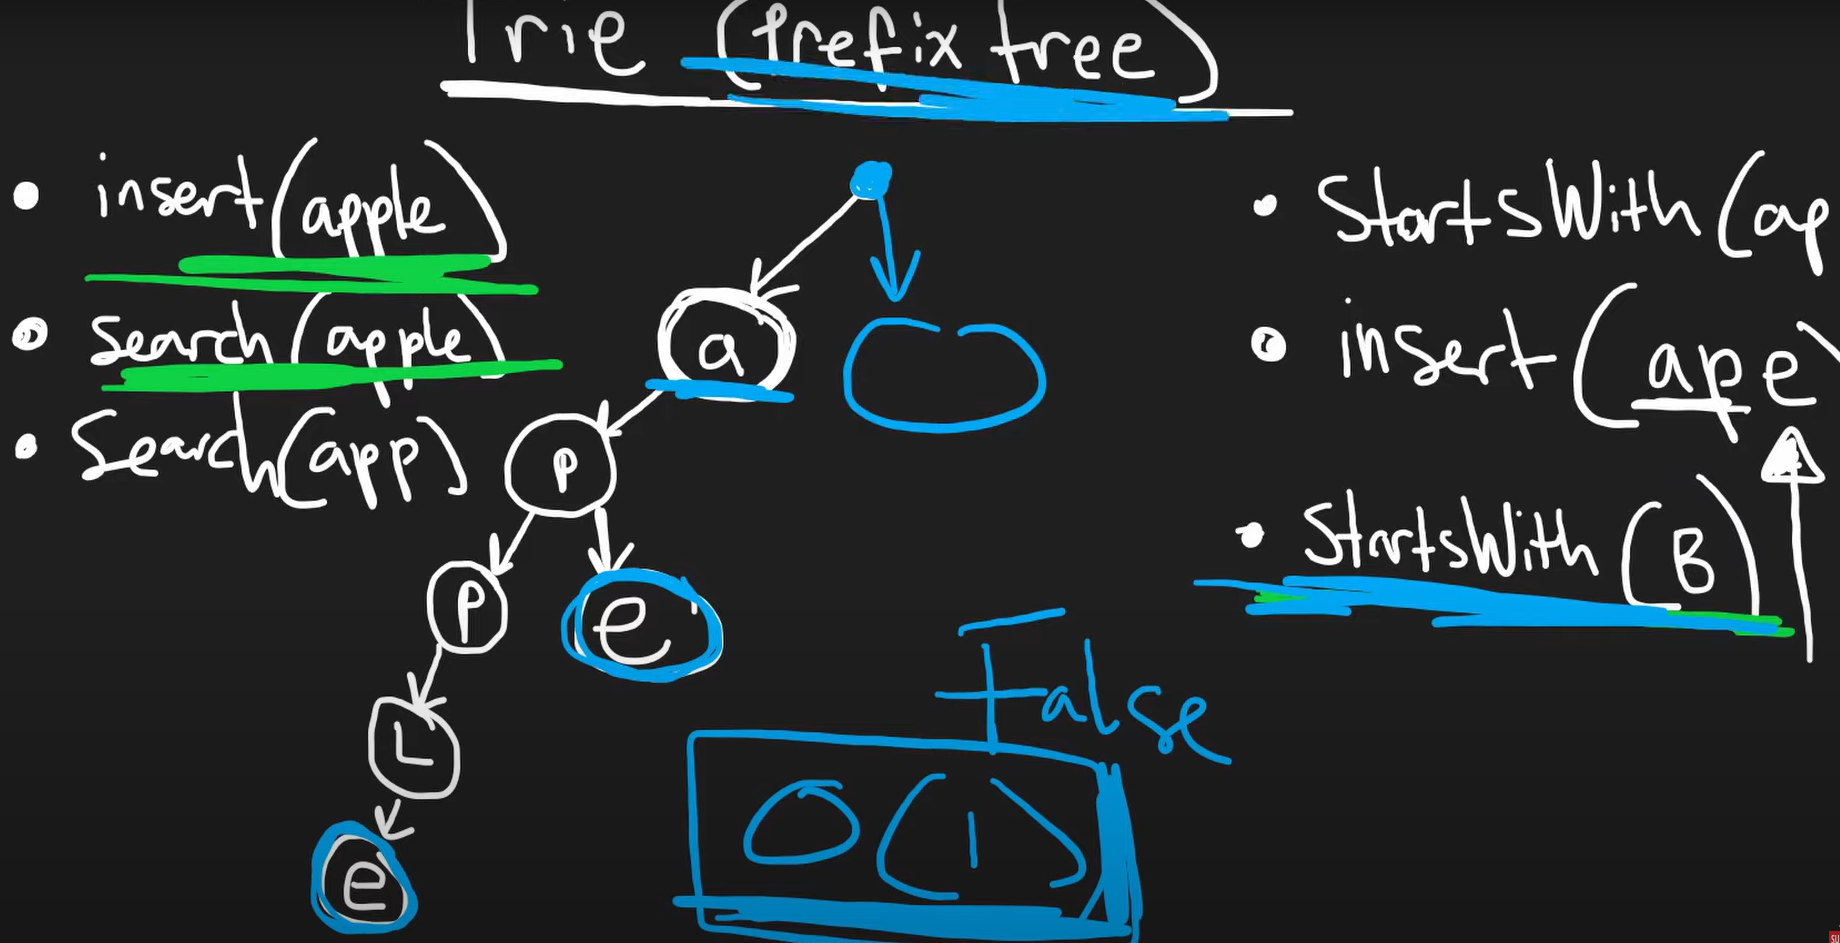 Trie (Prefix tree)
• insert(apple)
• search(apple)
• Search(app)
• StartsWith(ap
• insert(ape)
• StartsWith(B)
a
P
P
e
L
e
False
O(1)